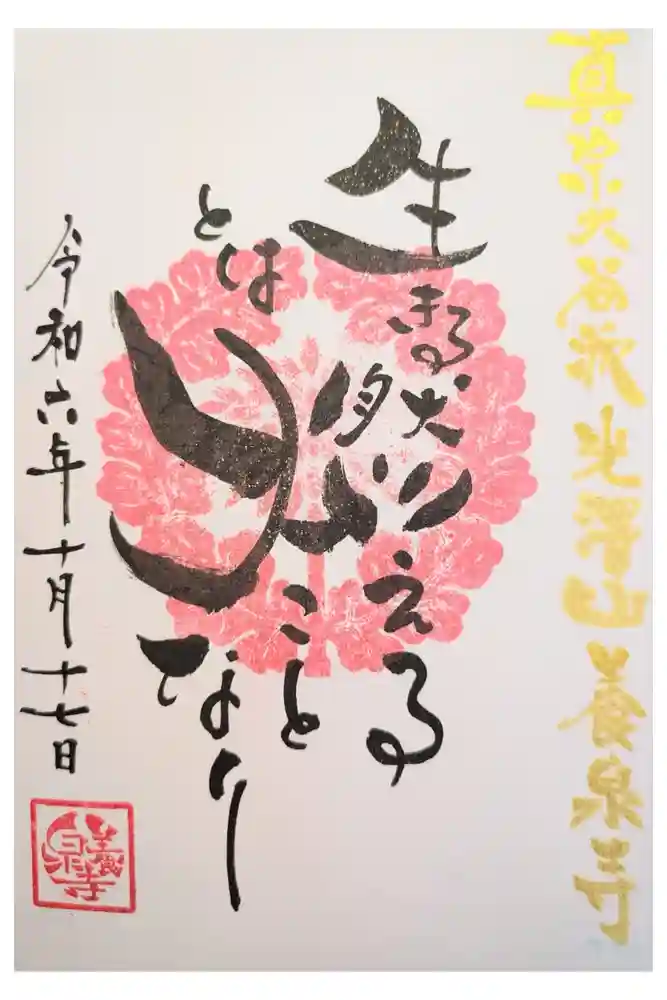 真宗大谷派光澤山養泉寺
生まる
とは
燃える
こと
なり
令和六年十月十七日
養泉寺